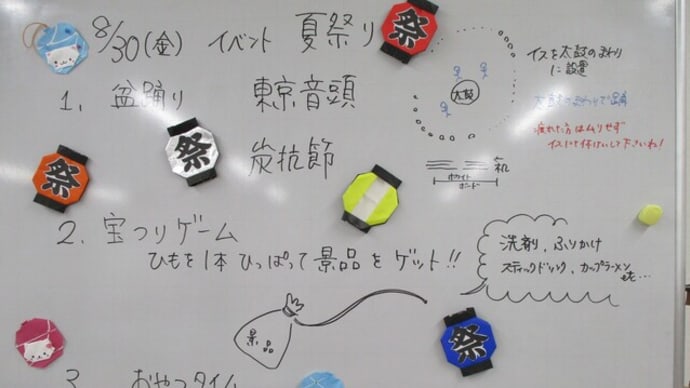 8/30(金) イベント 夏祭り
祭
1. 盆踊り 東京音頭
祭
祭
炭抗節
太鼓
イスを太鼓のまわり
に設置
太鼓のまわりで踊
疲れた方はムリせず
イスにて休けいして下さいね!
ホワイト
ボード
机
2. 宝つりゲーム
ひもを1本ひっぱって景品をゲット!!
洗剤、ふりかけ
スティックドリンク、カップラーメン
etc…
景品
祭
3. おやつタイム